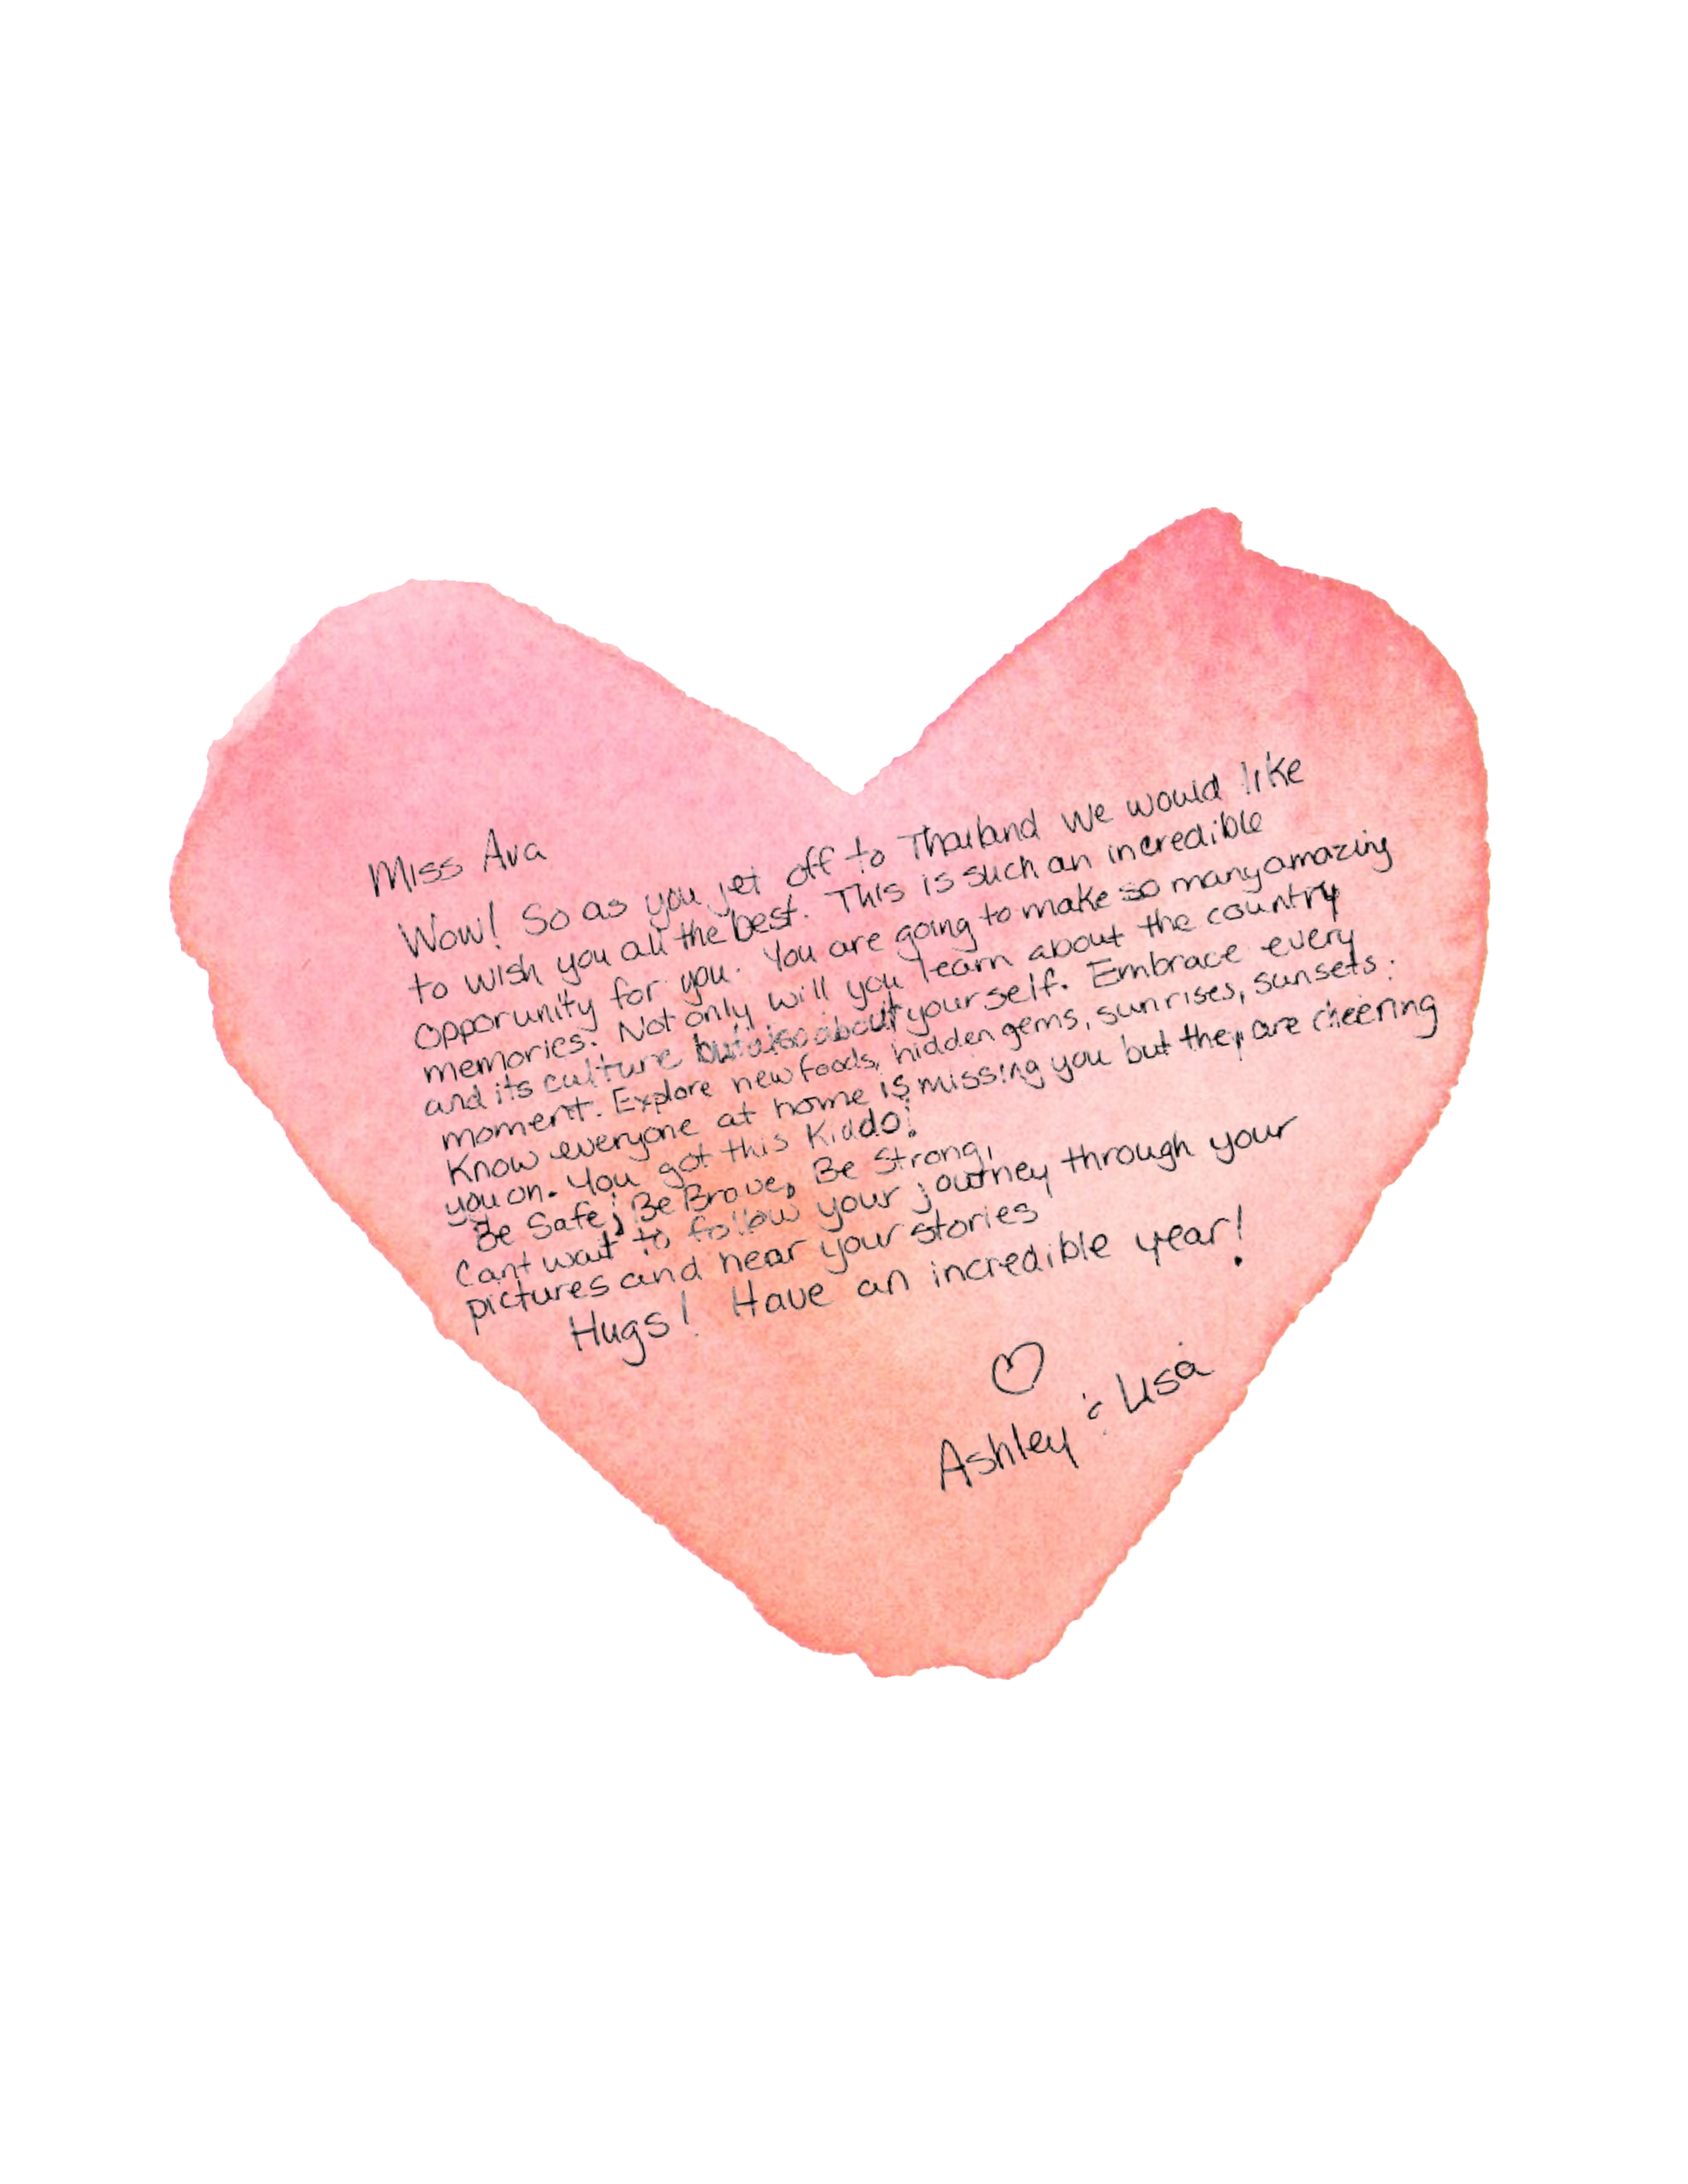 Miss Ava
Wow! So as you jet off to Thailand We would like
to wish you all the best. This is such an incredible
Opporunity for you. You are going to make so many amazing
memories. Not only will you learn about the country
and its culture but also about yourself. Embrace every
moment. Explore new foods, hidden gems, sunrises, sunsets.
Know everyone at home is missing you but they are cheering
you on. You got this Kiddo!
Be Safe, Be Brave, Be Strong,
Cant wait to follow your journey through your
pictures and hear your stories
Hugs! Have an incredible year!
♡
Ashley & Lisa